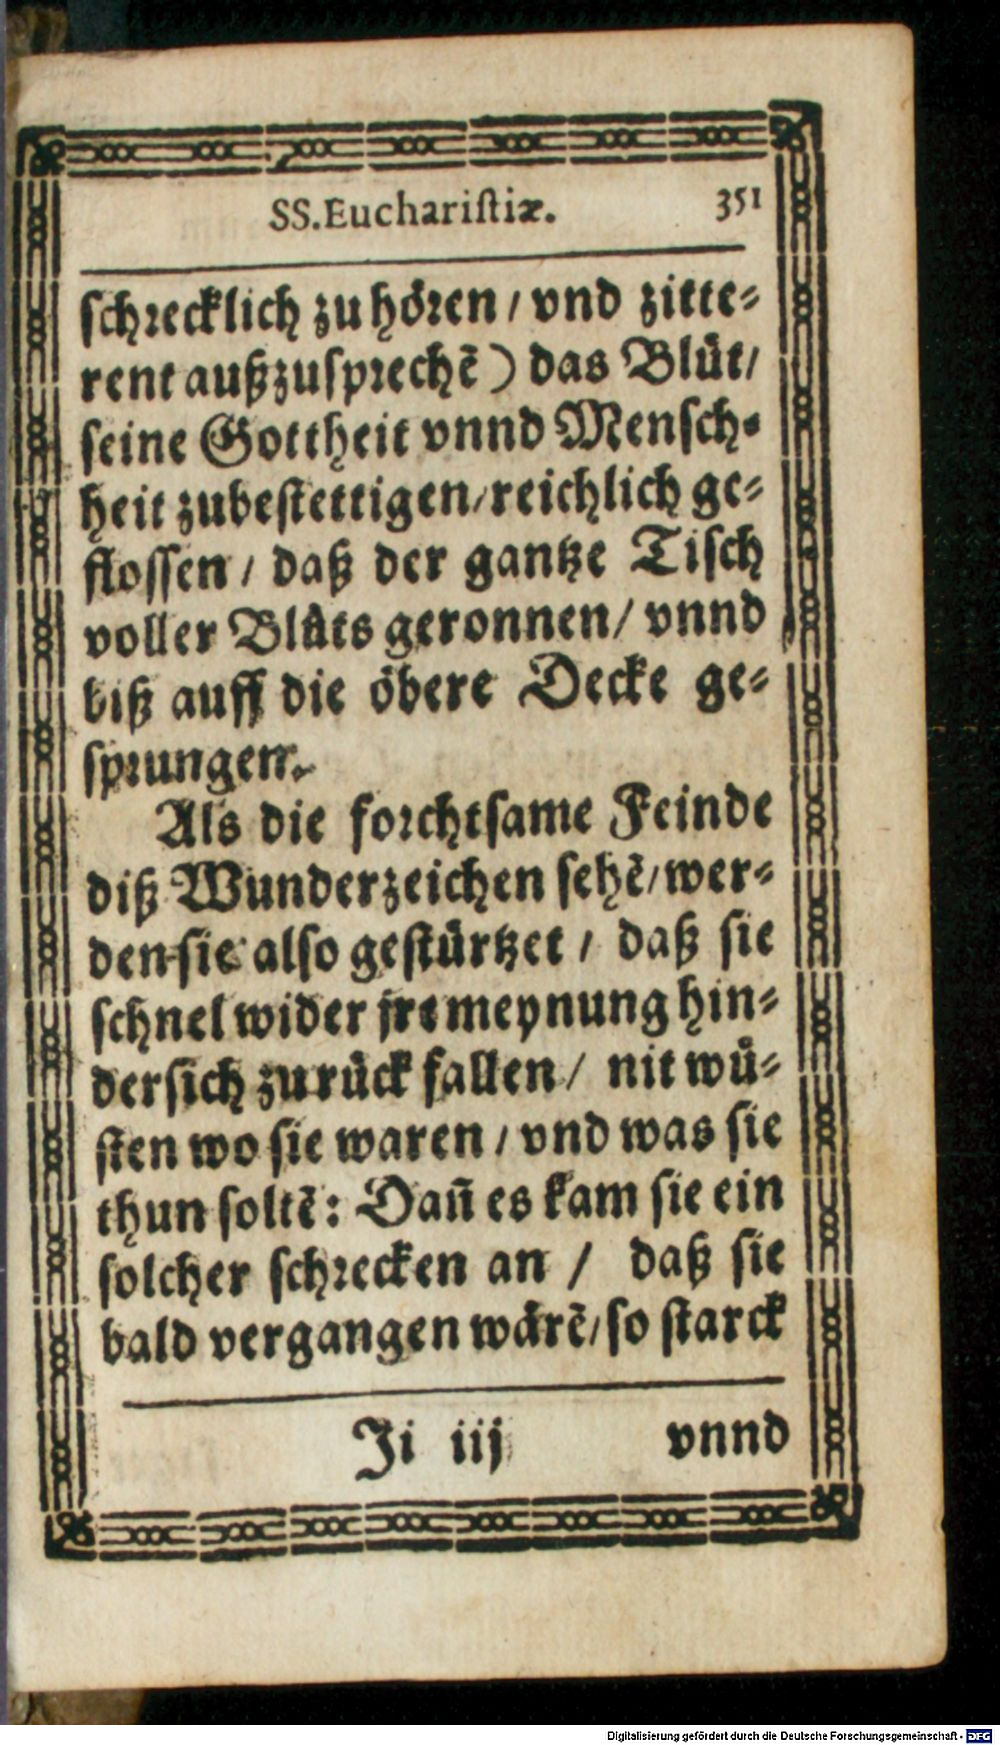 SS. Euchariſtiæ. 351
ſchrecklich zu hören / vnd zitte⸗
rent außzuſprechẽ) das Blůt /
ſeine Gottheit vnnd Menſch⸗
heit zubeſtettigen / reichlich ge⸗
floſſen / daß der gantze Tiſch
voller Blůts geronnen / vnnd
biß auff die öbere Decke ge⸗
ſprungen.
Als die forchtſame Feinde
diß Wunderzeichen ſehẽ / wer⸗
den ſie alſo geſtürtzet / daß ſie
ſchnel wider jre meynung hin⸗
derſich zurück fallen / nit wů⸗
ſten wo ſie waren / vnd was ſie
thun ſoltẽ: Dañ es kam ſie ein
ſolcher ſchrecken an / daß ſie
bald vergangen wärẽ / ſo ſtarck
Ji iij vnnd
Digitalisierung gefördert durch die Deutsche Forschungsgemeinschaft - DFG